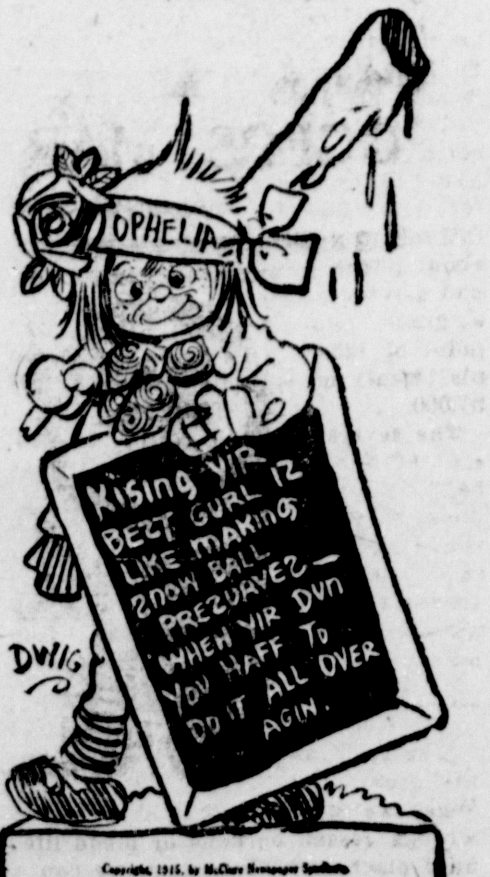 OPHELIA
KISING YIR
BEZT GURL IZ
LIKE MAKING
SNOW BALL
PREZURVEZ—
WHEN YIR DUN
YOU HAFF TO
DO IT ALL OVER
AGIN.
DWIG
Copyright, 1915, by McClure Newspaper Syndicate